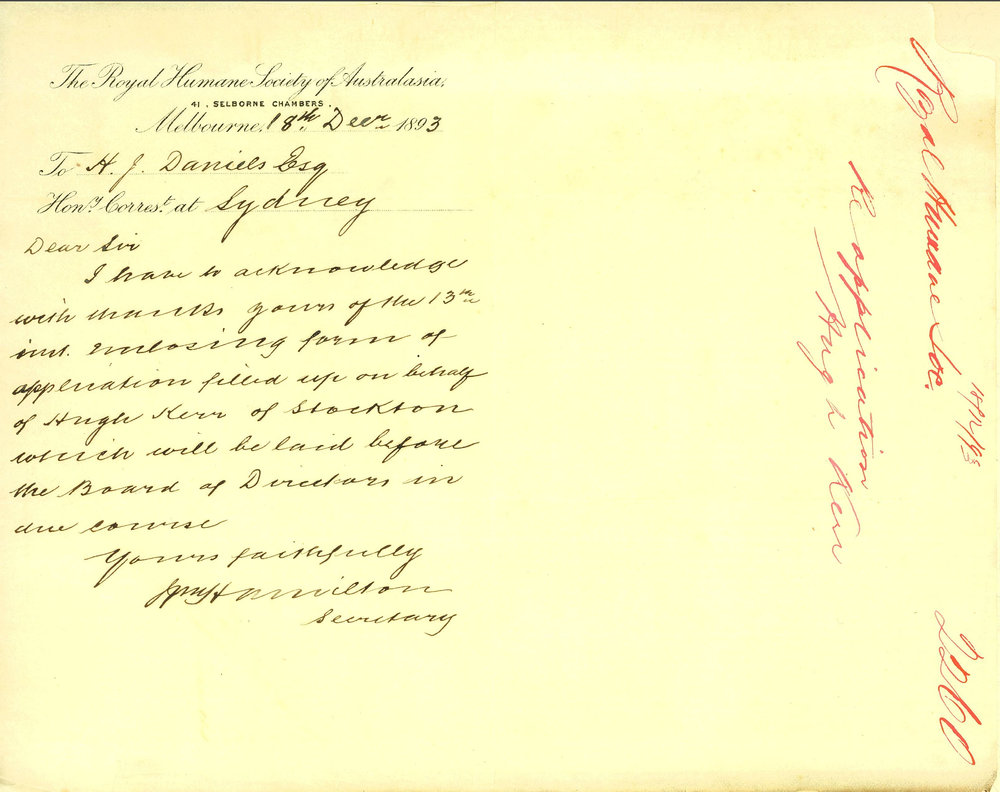 The Royal Humane Society of Australasia,
41, SELBORNE CHAMBERS.
Melbourne, 18th Decr 1893
To H. J. Daniels Esq
Hony. Correst. at Sydney
Dear Sir
I have to acknowledge
with thanks yours of the 13th
inst. enclosing form of
application filled up on behalf
of Hugh Kerr of Stockton
which will be laid before
the Board of Directors in
due course
Yours faithfully
Hamilton
Secretary
Royal Humane Soc.
18/12/93
Re application
Hugh Kerr